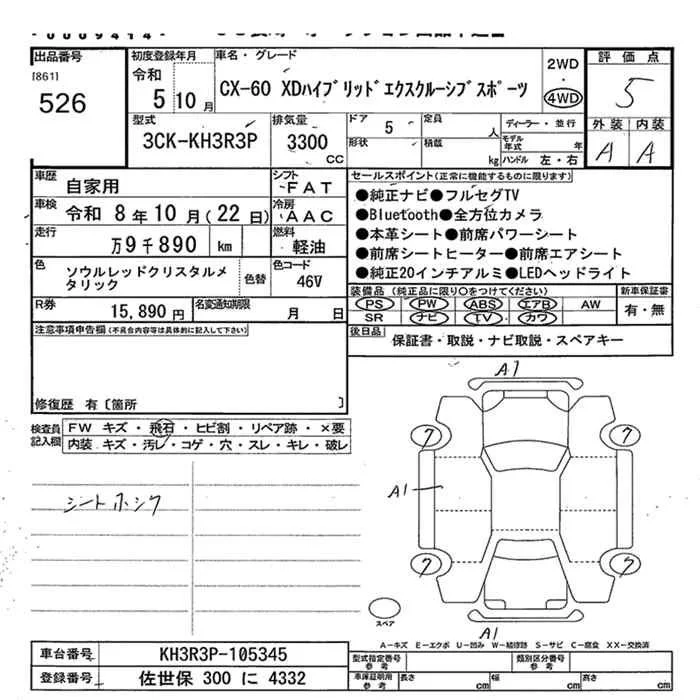 出品番号
[861]
526
初度登録年月
令和
5 10 月
車名・グレード
CX-60 XDハイブリッドエクスクルーシブスポーツ
2WD
・
4WD
評価点
5
外装 内装
A A
型式
3CK-KH3R3P
排気量
3300
CC
ドア 5
形状
定員 人
積載 kg
ディーラー・並行
モデル年式 年
ハンドル 左・右
車歴 自家用
シフト FAT
車検 令和 8年10月(22日)
冷房 AAC
走行 万9千890 km
燃料 軽油
色 ソウルレッドクリスタルメタリック
色替
色コード 46V
R券 15,890円
名変通知期限 月 日
セールスポイント(正常に機能するものに限ります)
●純正ナビ●フルセグTV
●Bluetooth●全方位カメラ
●本革シート●前席パワーシート
●前席シートヒーター●前席エアシート
●純正20インチアルミ●LEDヘッドライト
装備品(純正品に限り○をつけてください)
PS PW ABS エアB AW
SR ナビ TV カワ
新車保証書
有・無
後日品 保証書・取説・ナビ取説・スペアキー
注意事項申告欄(不具合内容等は具体的に記入して下さい)
修復歴 有〔箇所 〕
検査員記入欄
FW キズ・飛石・ヒビ割・リペア跡・×要
内装 キズ・汚レ・コゲ・穴・スレ・キレ・破レ
シートホシク
A1
7 7
A1
7 7
スペア
A1
A-キズ E-エクボ U-凹み W-補修跡 S-サビ C-腐食 XX-交換済
車台番号 KH3R3P-105345
登録番号 佐世保 300 に 4332
型式指定番号参考
類別区分番号参考
車体証明用参考
長さ cm 幅 cm 高さ cm